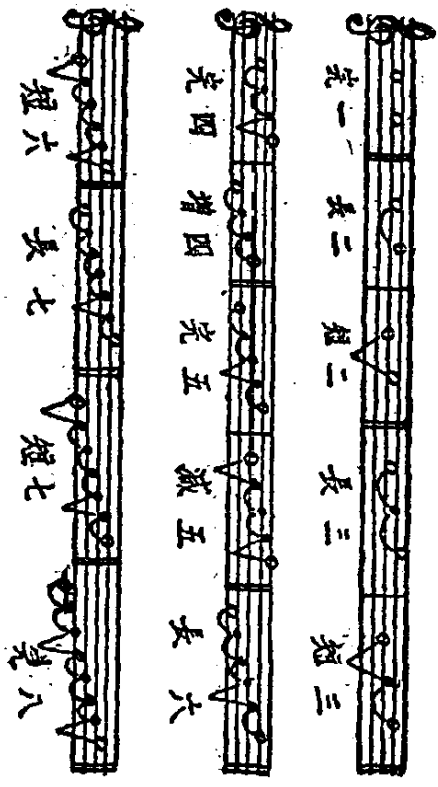 完一 長二 短二 長三 短三
完四 增四 完五 減五 長六
短六 長七 短七 完八